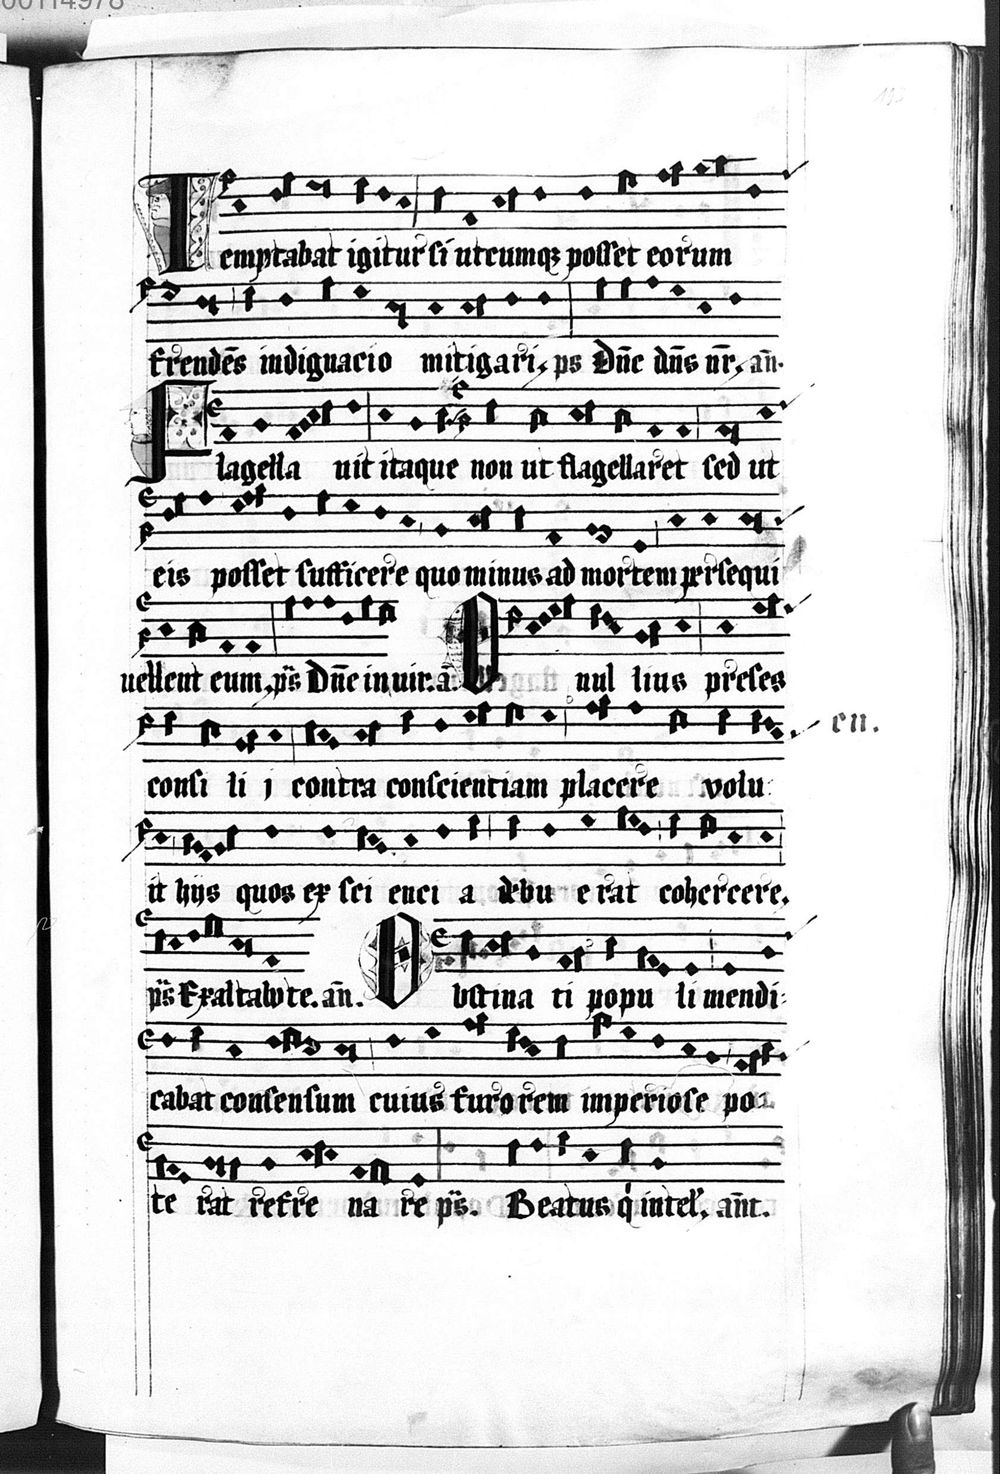 00114978
193
Temptabat igitur si utcumqʒ posset eorum
frendēs indignacio mitigari. ps Dn̄e dn̄s nr̄. an̄.
Flagella uit itaque non ut flagellaret sed ut
eis posset sufficere quo minus ad mortem persequi
uellent eum. ps Dn̄e in uir. a. Nul lius preses
consi li j contra conscientiam placere volu en.
it hijs quos ex sci enci a debu e rat cohercere.
ps Exaltabo te. an̄. Obstina ti popu li mendi
cabat consensum cuius furorem imperiose po
te rat refre na re ps. Beatus q intel. an̄t.